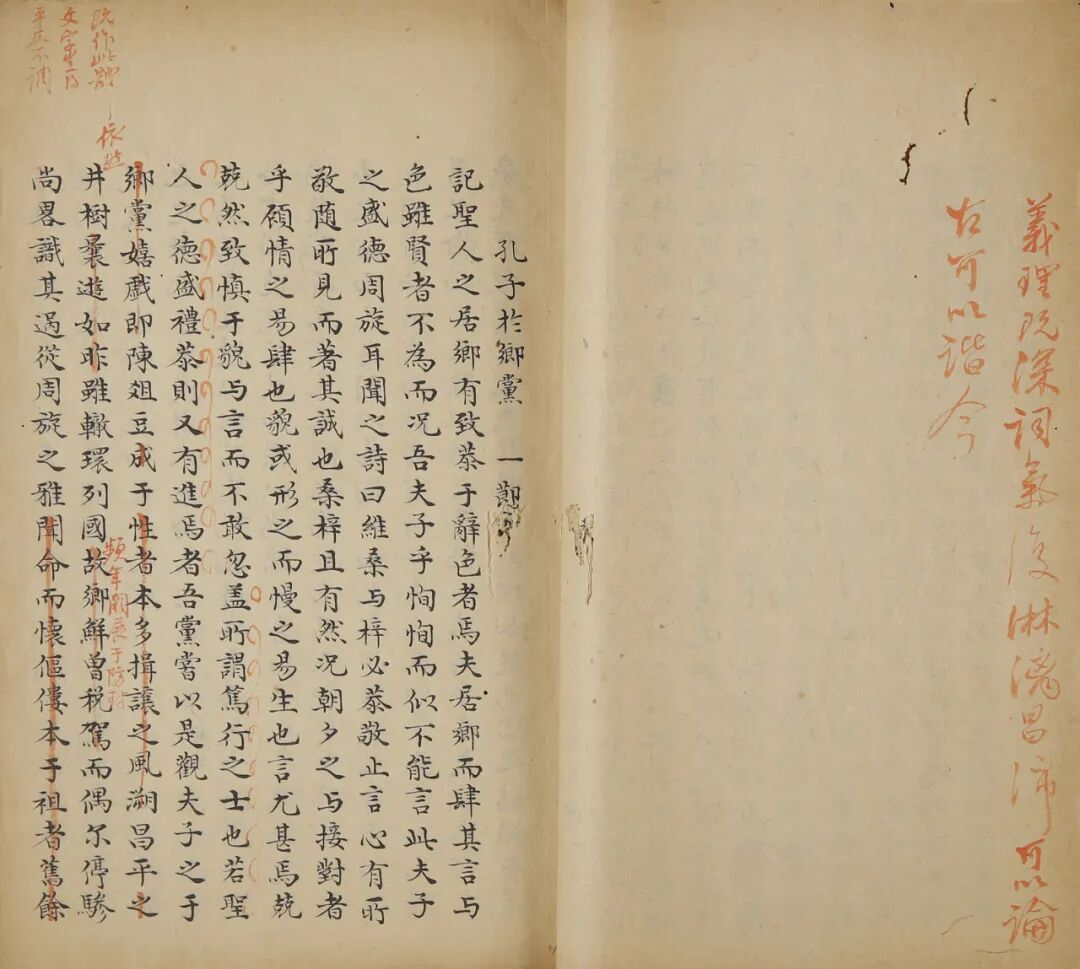 義理既深詞氣復淋漓昌沛可以論
古可以諧今
孔子於鄉黨 一節
記聖人之居鄉有致恭于辭色者焉夫居鄉而肆其言与
色雖賢者不為而况吾夫子乎恂恂而似不能言此夫子
之盛德周旋耳聞之詩曰維桑与梓必恭敬止言心有所
敬随所見而著其誠也桑梓且有然况朝夕之与接對者
乎顧情之易肆也貌或形之而慢之易生也言尤甚焉兢
兢然致慎于貌与言而不敢忽盖所謂篤行之士也若聖
人之德盛禮恭則又有進焉者吾黨嘗以是觀夫子之于
鄉黨嬉戲即陳俎豆成于性者本多揖讓之風溯昌平之
井樹曩遊如昨雖轍環列國故鄉鮮曽税駕而偶尓停驂
尚畧識其過從周旋之雅聞命而懷傴僂本于祖者舊餘
依然
既作此
文字
平仄不調